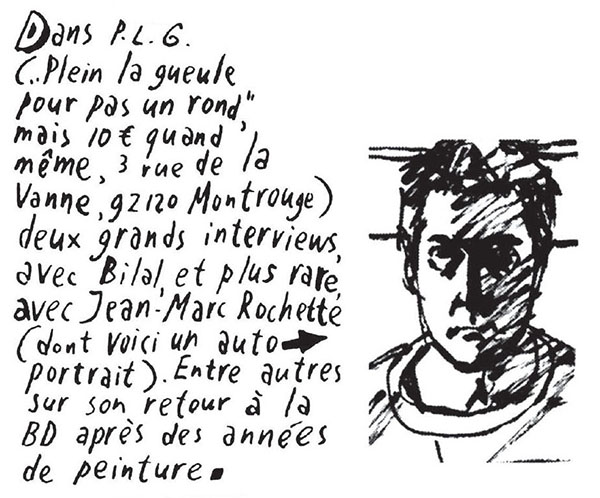 Dans P.L.G.
("Plein la gueule
pour pas un rond",
mais 10 € quand
même, 3 rue de la
Vanne, 92120 Montrouge)
deux grands interviews,
avec Bilal, et plus rare,
avec Jean-Marc Rochette
(dont voici un auto-
portrait). Entre autres
sur son retour à la
BD après des années
de peinture.